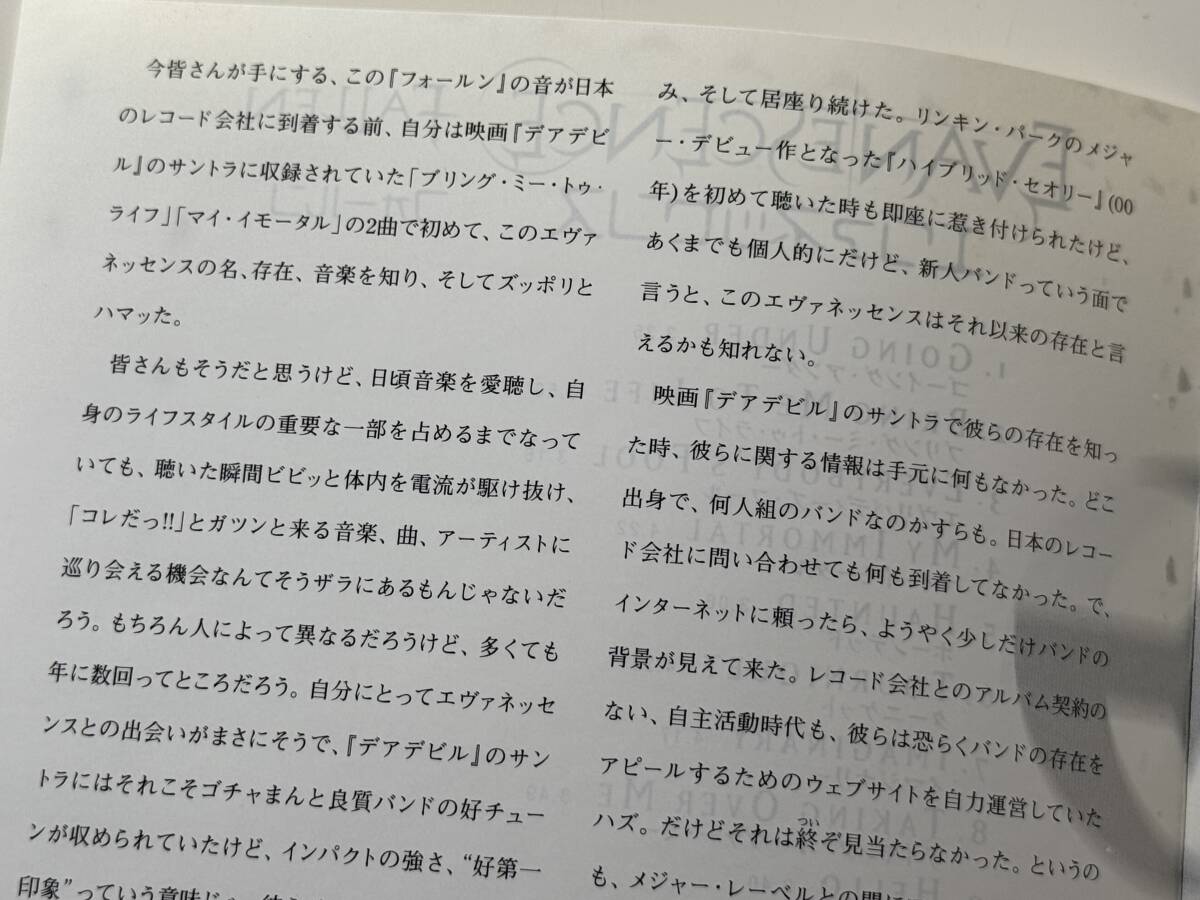 今皆さんが手にする、この『フォールン』の音が日本
のレコード会社に到着する前、自分は映画『デアデビ
ル』のサントラに収録されていた「ブリング・ミー・トゥ・
ライフ」「マイ・イモータル」の2曲で初めて、このエヴァ
ネッセンスの名、存在、音楽を知り、そしてズッポリと
ハマッた。
皆さんもそうだと思うけど、日頃音楽を愛聴し、自
身のライフスタイルの重要な一部を占めるまでなって
いても、聴いた瞬間ビビッと体内を電流が駆け抜け、
「コレだっ!!」とガツンと来る音楽、曲、アーティストに
巡り会える機会なんてそうザラにあるもんじゃないだ
ろう。もちろん人によって異なるだろうけど、多くても
年に数回ってところだろう。自分にとってエヴァネッセ
ンスとの出会いがまさにそうで、『デアデビル』のサン
トラにはそれこそゴチャまんと良質バンドの好チュー
ンが収められていたけど、インパクトの強さ、“好第一
印象”っていう意味じゃ
み、そして居座り続けた。リンキン・パークのメジャ
ー・デビュー作となった『ハイブリッド・セオリー』(00
年)を初めて聴いた時も即座に惹き付けられたけど、
あくまでも個人的にだけど、新人バンドっていう面で
言うと、このエヴァネッセンスはそれ以来の存在と言
えるかも知れない。
映画『デアデビル』のサントラで彼らの存在を知っ
た時、彼らに関する情報は手元に何もなかった。どこ
出身で、何人組のバンドなのかすらも。日本のレコー
ド会社に問い合わせても何も到着してなかった。で、
インターネットに頼ったら、ようやく少しだけバンドの
背景が見えて来た。レコード会社とのアルバム契約の
ない、自主活動時代も、彼らは恐らくバンドの存在を
アピールするためのウェブサイトを自力運営していた
ハズ。だけどそれは終ぞ見当たらなかった。というの
も、メジャー・レーベルとの間に